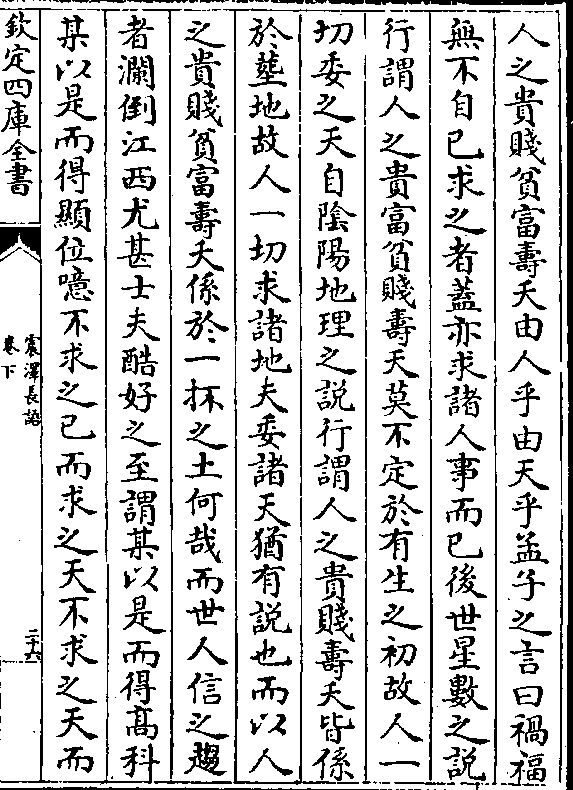 人之貴賤貧富壽夭由人乎由天乎孟子之言曰禍福
無不自已求之者葢亦求諸人事而已後世星數之説
行謂人之貴富貧賤壽夭莫不定於有生之初故人一
切委之天自陰陽地理之説行謂人之貴賤壽夭皆係
於塟地故人一切求諸地夫委諸天猶有説也而以人
之貴賤貧富壽夭係於一抔之土何哉而世人信之趨
者瀾倒江西尤甚士夫酷好之至謂某以是而得髙科
某以是而得顯位噫不求之已而求之天不求之天而
欽定四庫全書
震澤長語
卷下
二十六